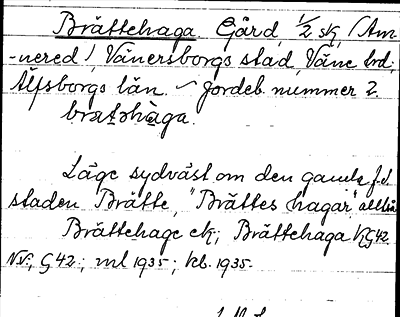 Brättehaga. Gård, 1/2 sk, (Am-
-nered), Vänersborgs stad, Väne hd;
Älfsborgs län. Jordeb. nummer 2.
bratəhàga.
Läge sydväst om den gamla f.d.
staden Brätte, "Brättes hagar" alltså
Brättehage ek; Brättehaga KG42
NV; G42; ml 1935; kb. 1935.